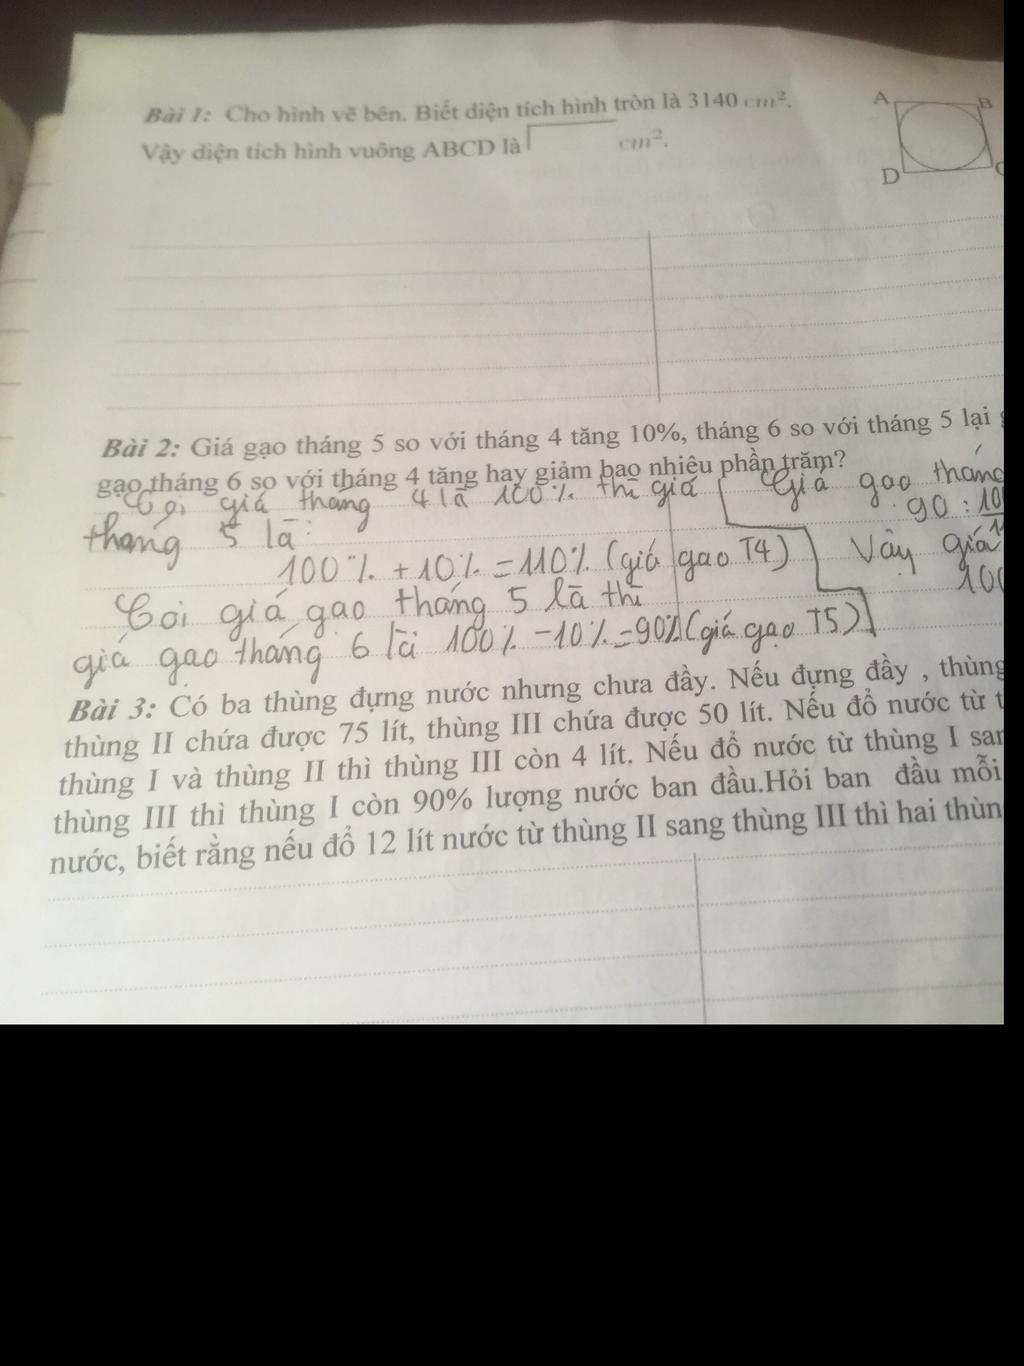 Bài 1: Cho hình vẽ bên. Biết diện tích hình tròn là 3140 cm².
Vậy diện tích hình vuông ABCD là cm².
A B
D C
Bài 2: Giá gạo tháng 5 so với tháng 4 tăng 10%, tháng 6 so với tháng 5 lại
gạo tháng 6 so với tháng 4 tăng hay giảm bao nhiêu phần trăm?
Coi giá tháng 4 là 100% thì giá
tháng 5 là:
100% + 10% = 110% (giá gạo T4)
Coi giá gạo tháng 5 là thì
giá gạo tháng 6 là 100% - 10% = 90% (giá gạo T5)
Giá gạo tháng
90 :
Vậy giá
Bài 3: Có ba thùng đựng nước nhưng chưa đầy. Nếu đựng đầy , thùng
thùng II chứa được 75 lít, thùng III chứa được 50 lít. Nếu đổ nước từ
thùng I và thùng II thì thùng III còn 4 lít. Nếu đổ nước từ thùng I
thùng III thì thùng I còn 90% lượng nước ban đầu.Hỏi ban đầu mỗi
nước, biết rằng nếu đổ 12 lít nước từ thùng II sang thùng III thì hai